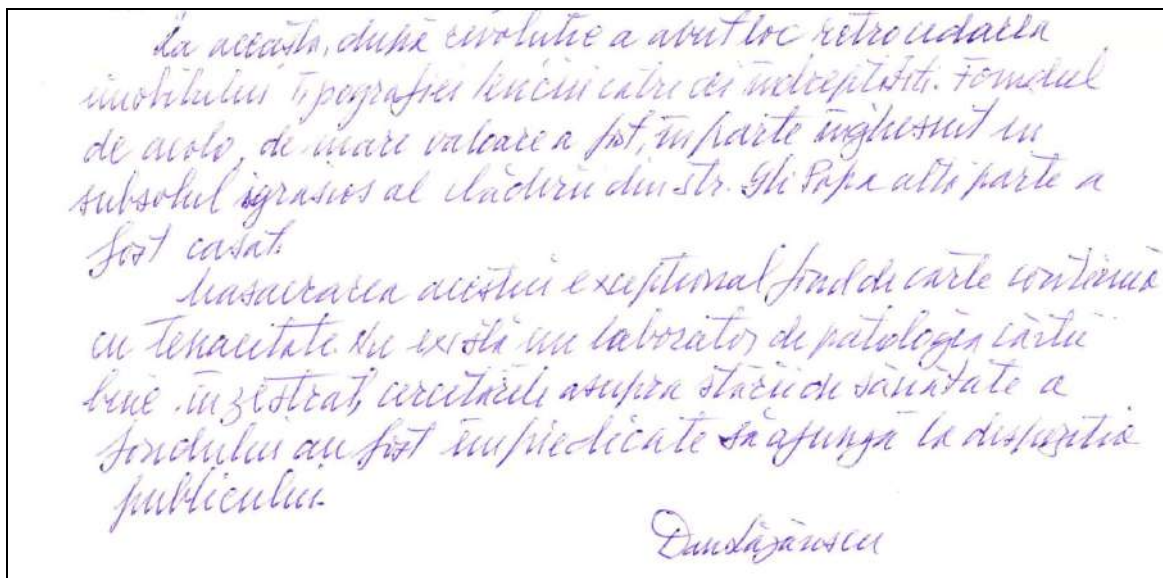 La aceasta, după revolutie a avut loc retrocedarea
imobilului Tipografiei către cei indreptătiti. Fondul
de acolo, de mare valoare a fost, in parte inghesuit in
subsolul igrasios al clădirii din str. Gh Popa altă parte a
fost casat.
Masacrarea acestui exceptional fond de carte continuă
cu tenacitate. Nu există un laborator de patologia cărtii
bine inzestrat, cercetările asupra stării de sănătate a
fondului au fost impiedicate să ajungă la dispozitia
publicului.
Dan Lăzărescu